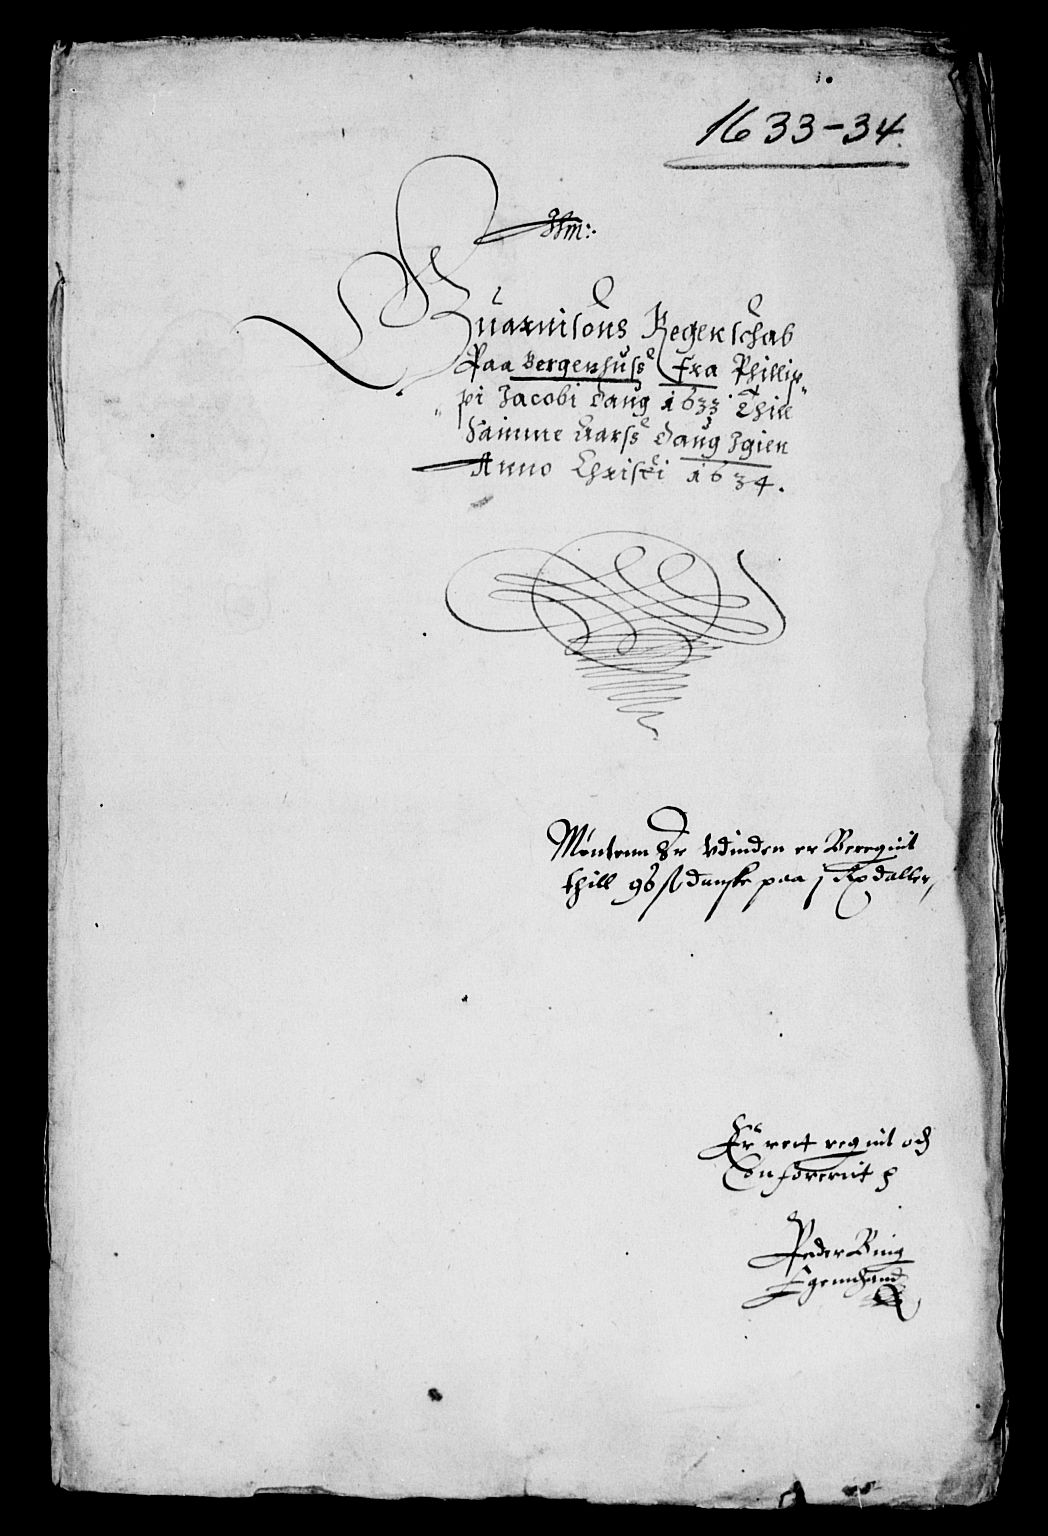 1633-34.
Guarnisons Regenschab
Paa Bergenhuss fra Phillip„
„pi Jacobi daug 1633 Thill
Samme Aarss daug Igien
Anno Christi 1634.
Mønten er vdinden er Beregnit
thill 96 ß danske paa j Rxdaller,
Er rett regnit och
Confererit p
Peder Bing
Egennhand